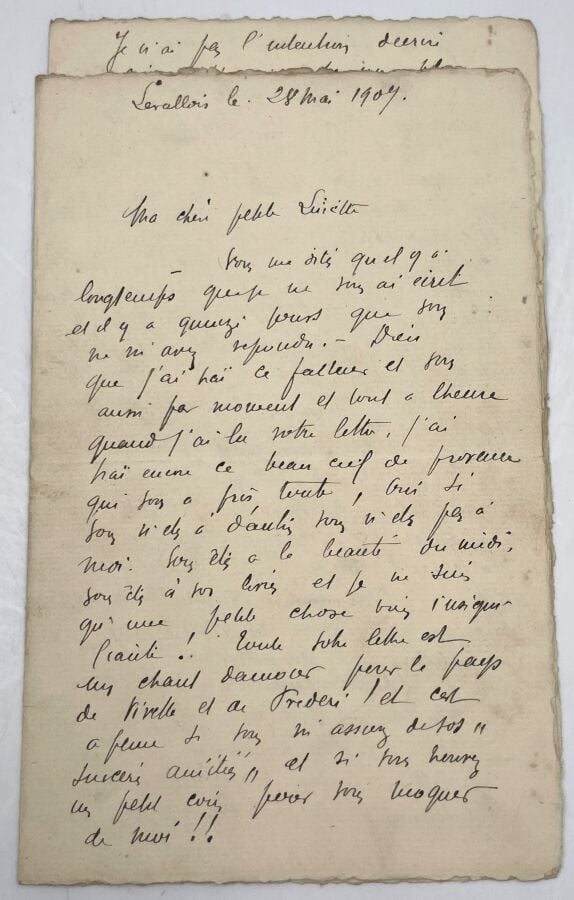 Je n'ai pas l'intention décrire
Levallois le. 28 Mai 1907.
Ma chéri petite
Vous me dites quil y a
longtemps que je ne vous ai écrit
et il y a quinze jours que vous
ne m'avez repondu. – Dieu
que j'ai haï ce facteur et vous
aussi par moment et tout a lheure
quand j'ai lu votre lettre, j'ai
haï encore ce beau ciel de provence
qui vous a pris toute, Oui si
vous n'etes à d'autres vous n'etes pas à
moi. Vous êtes a la beauté du midi,
vous êtes à vos livres et je ne suis
qu'une petite chose bien insigni-
fiante ! Toute votre lettre est
un chant damour pour le pays
de Vivette et de Frederi ! et c'est
a peine si vous m'assurez de vos "
sincères amitiés " et si vous trouvez
un petit coin pour vous moquer
de moi !!